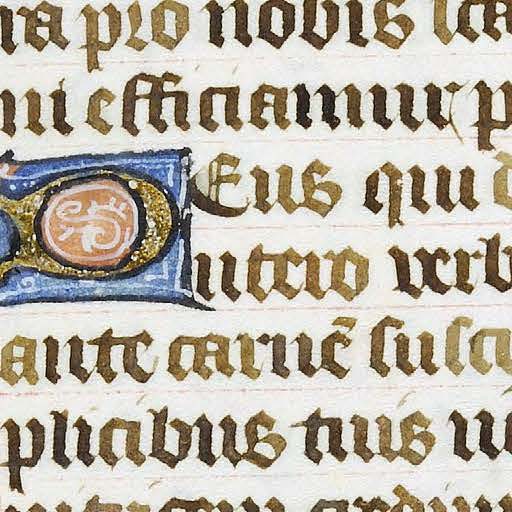 pro nobis
efficiamur
Eus qui
utero verb
ante carnē susci
plicibus tuis